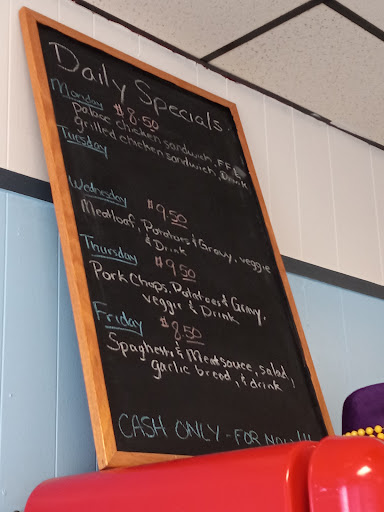 Daily Specials
Monday $8.50
palace chicken sandwich, FF &
grilled chicken sandwich, Drink
Tuesday
Wednesday $9.50
Meatloaf, Potatoes & Gravy, veggie
& Drink
Thursday $9.50
Pork Chops, Potatoes & Gravy,
veggie & Drink
Friday $8.50
Spaghetti & Meatsauce, salad,
garlic bread, & drink
CASH ONLY - FOR NOW!!